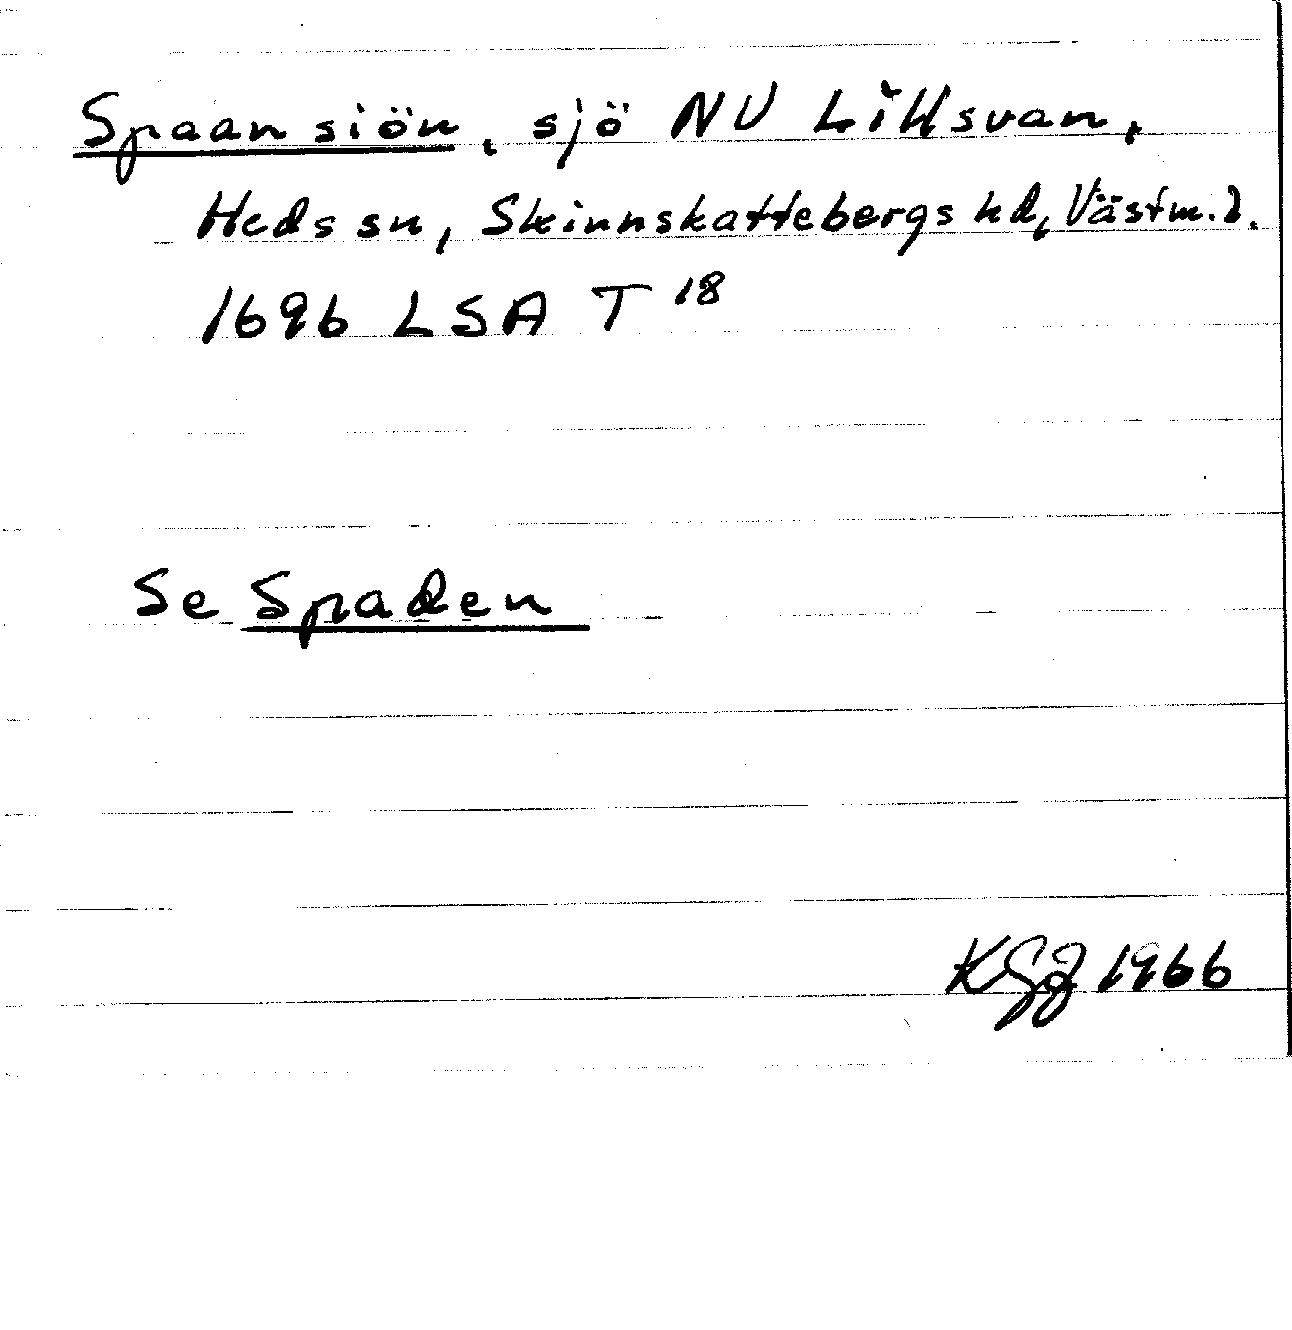 Spaansiön, sjö NV Lillsvan,
Heds sn, Skinnskattebergs hd, Västm.l.
1696 LSA T 18
Se Spaden
KGJ 1966